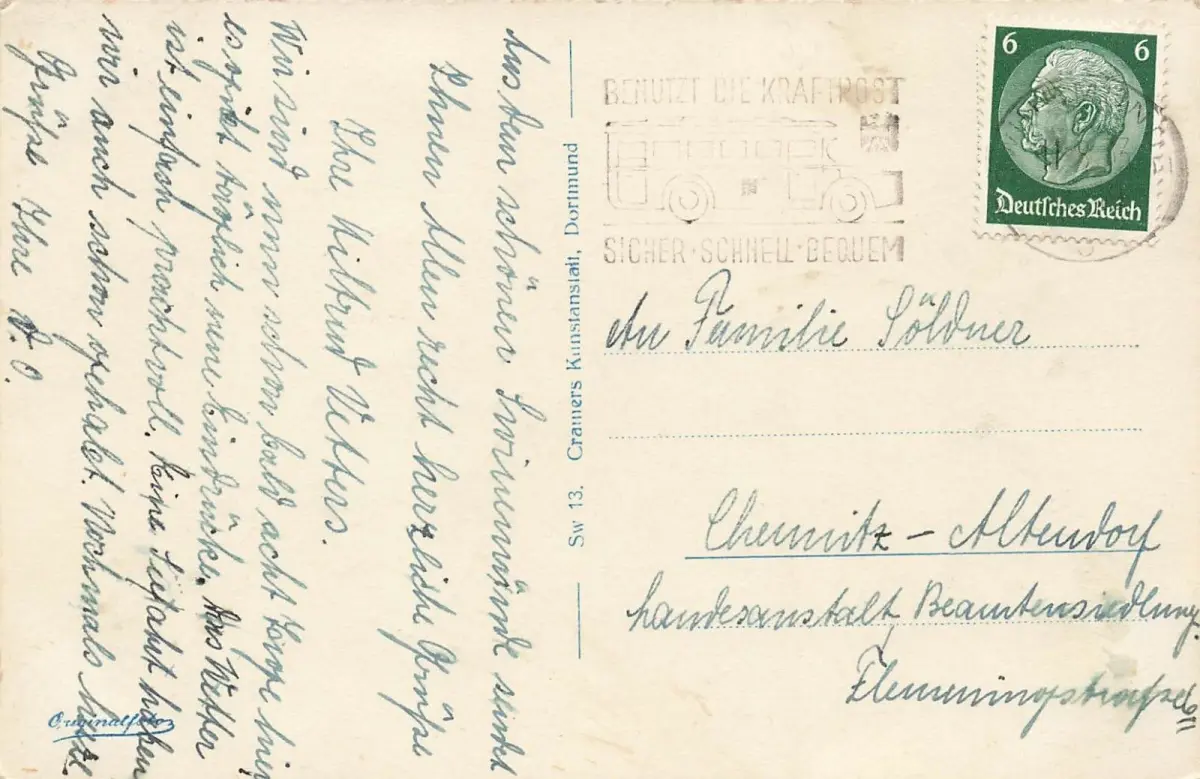 Aus dem schönen Swinemünde sendet
Ihnen Allen recht herzliche Grüße
Ihre Hiltrud Vetters.
Wir sind nun schon bald acht Tage hier
es gibt täglich neue Eindrücke. Das Wetter
ist einfach prachtvoll. Eine Seefahrt haben
wir auch schon gehabt. Nochmals herzl.
Grüße Ihre H. V.
Originalfoto
Sw 13. Cramers Kunstanstalt, Dortmund
BENUTZT DIE KRAFTPOST
SICHER · SCHNELL · BEQUEM
6 6
Deutsches Reich
An Familie Söldner
Chemnitz – Altendorf
Landesanstalt Beamtensiedlung
Flemmingstraße